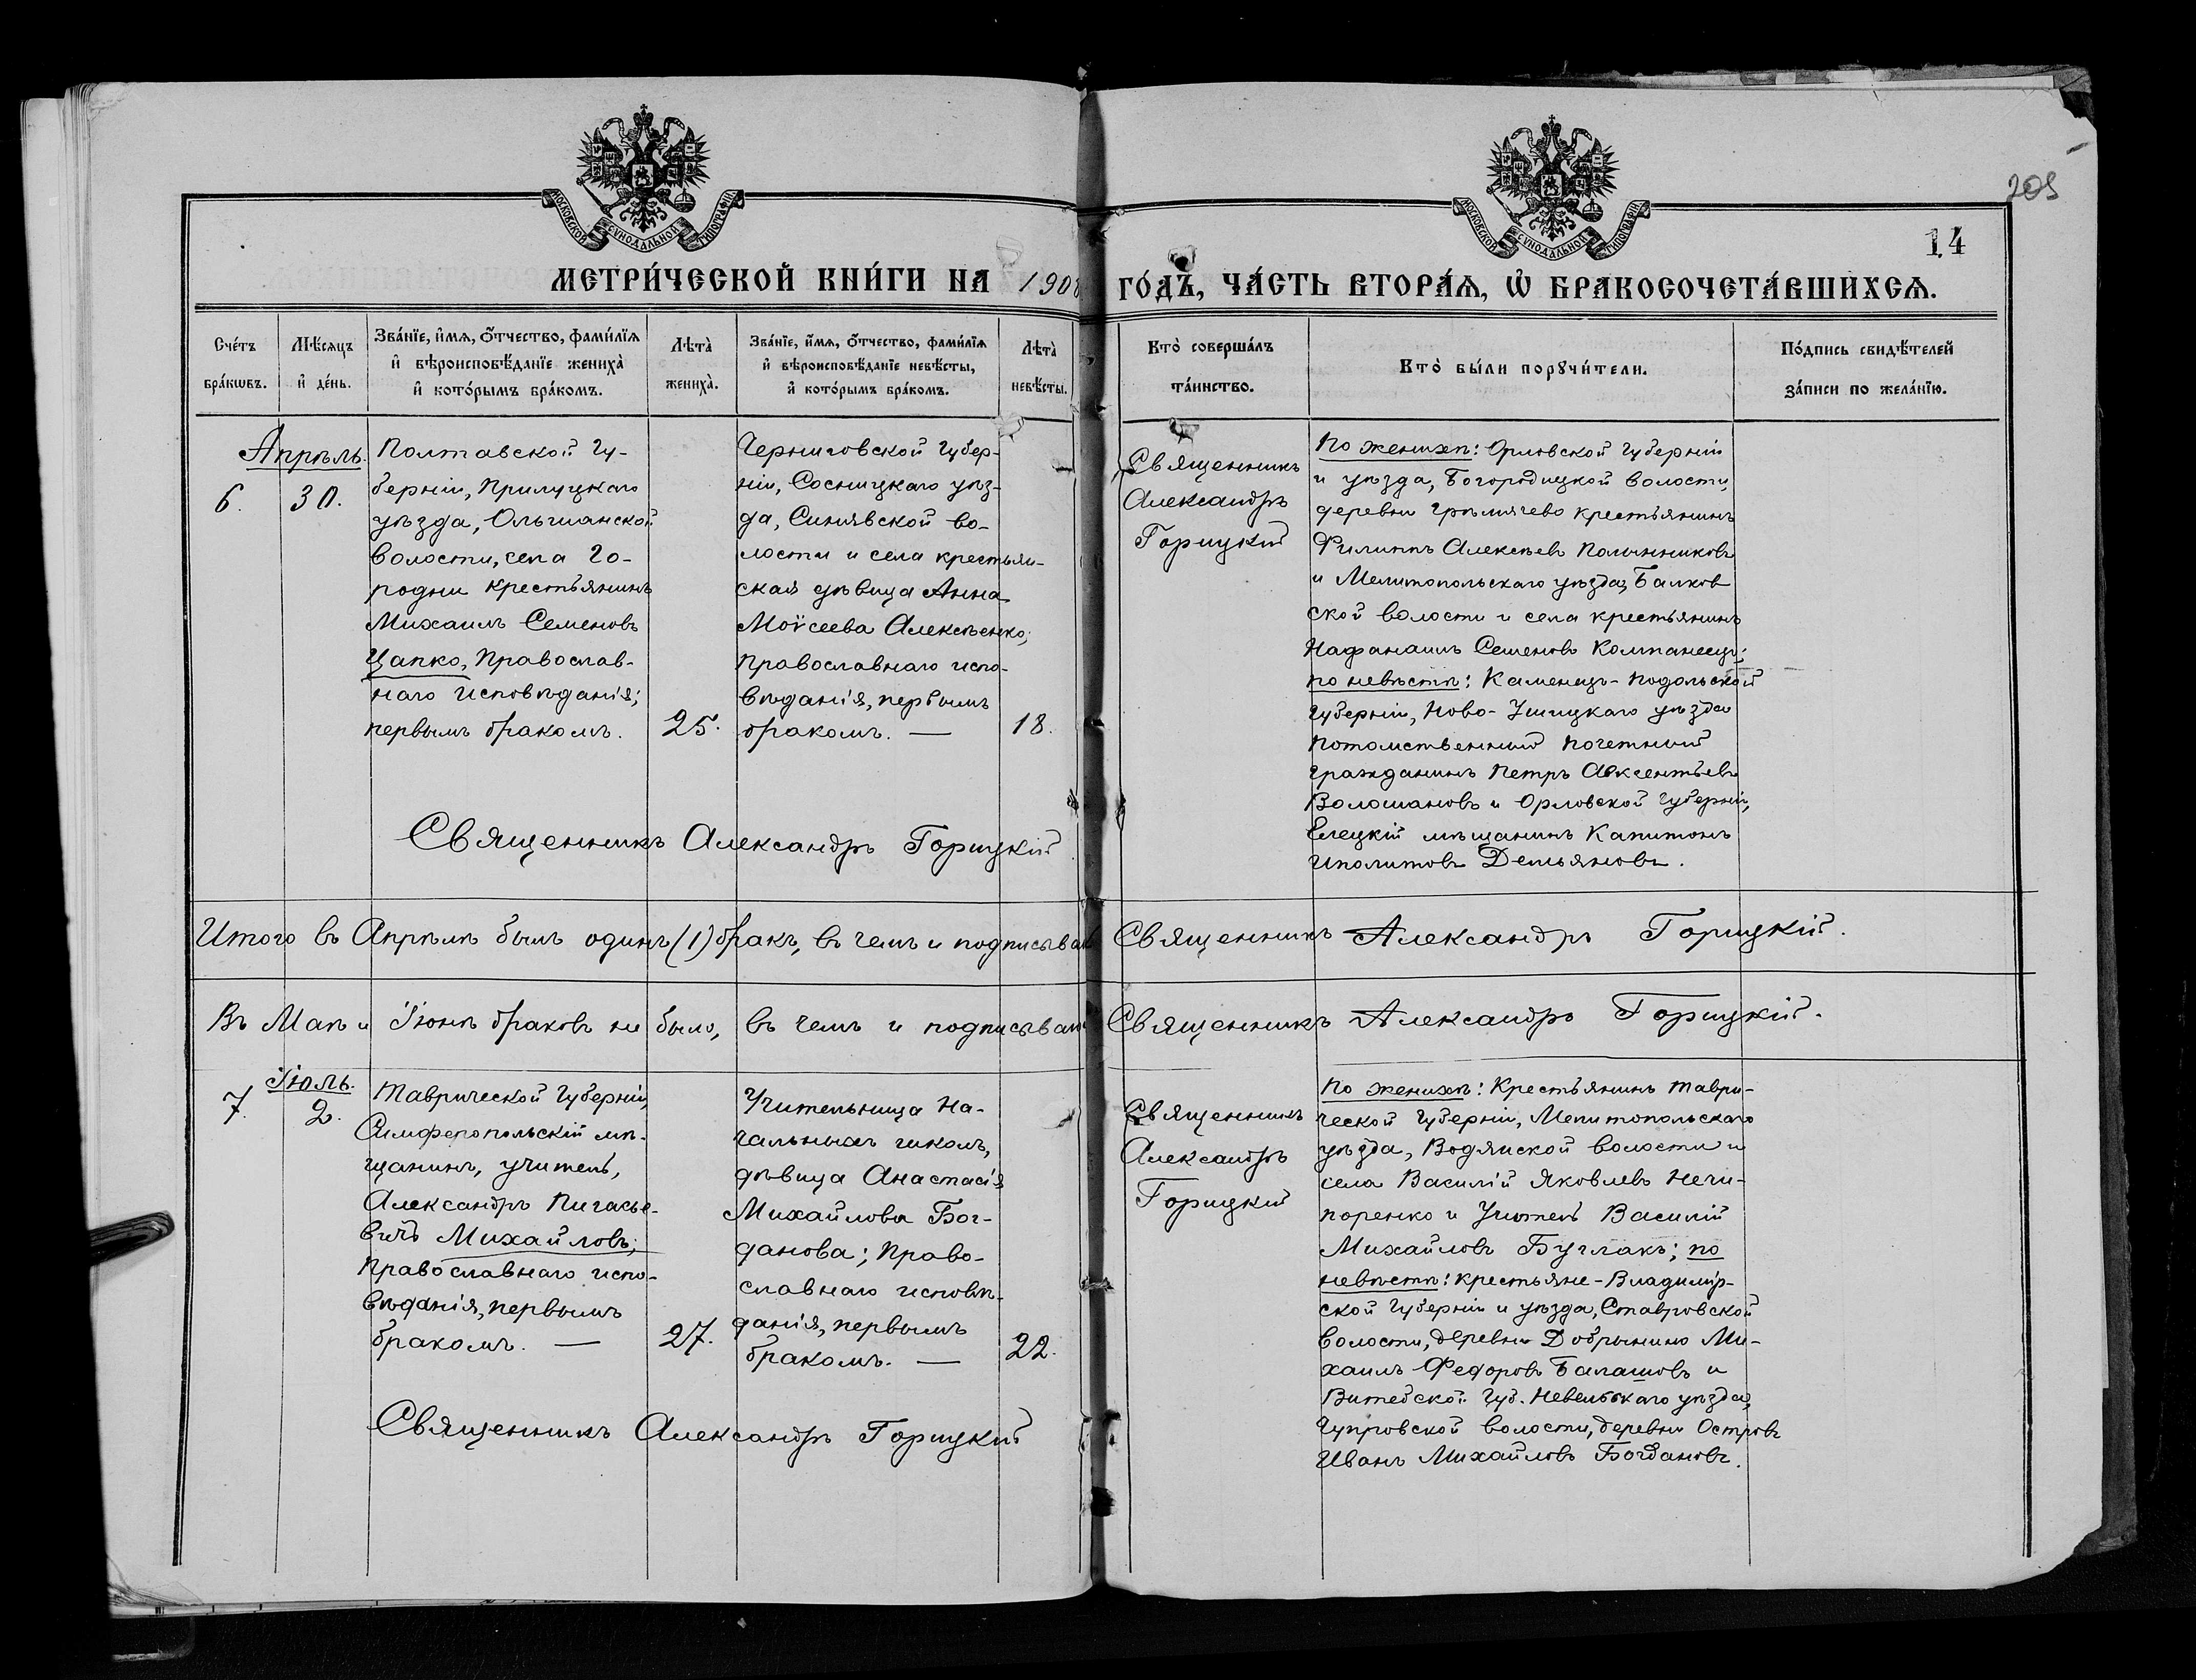 205
14
МОСКОВСКОЙ СѴНОДАЛЬНОЙ ТИПОГРАФІИ
МОСКОВСКОЙ СѴНОДАЛЬНОЙ ТИПОГРАФІИ
МЕТРИ́ЧЕСКОЙ КНИ́ГИ НА 1908 ГО́ДЪ, ЧА́СТЬ ВТОРА́Я, Ѡ҆ БРАКОСОЧЕТА́ВШИХСЯ.
Сче́тъ
бра́кѡвъ.
Мѣ́сяцъ
и҆ де́нь.
Зва́нїе, и҆́мя, ѻ҆́тчество, фами́лїя
и҆ вѣроисповѣ́данїе жениха̀
и҆ кото́рымъ бра́комъ.
Лѣта̀
жениха̀.
Зва́нїе, и҆́мя, ѻ҆́тчество, фами́лїя
и҆ вѣроисповѣ́данїе невѣ́сты,
и҆ кото́рымъ бра́комъ.
Лѣта̀
невѣ́сты.
Кто̀ соверша́лъ
та́инство.
Кто̀ бы́ли порꙋчи́тели.
По́дпись свидѣ́телей
за́писи по жела́нїю.
Апрѣль.
6.
30.
Полтавской Гу-
берніи, Прилуцкаго
уѣзда, Ольшанской
волости, села Го-
родни крестьянинъ
Михаилъ Семеновъ
Цапко, Православ-
наго исповѣданія;
первымъ бракомъ.
25.
Черниговской Губер-
ніи, Сосницкаго уѣз-
да, Синявской во-
лости и села крестьян-
ская дѣвица Анна
Моѵсеева Алексѣенко;
православнаго испо-
вѣданія, первымъ
бракомъ. —
18.
Священникъ
Александръ
Горицкій
По женихѣ: Орловской Губерніи
и уѣзда, Богородицкой волости,
деревни крестьянинъ
Филиппъ Алексѣевъ
и Мелитопольскаго уѣзда, Балков
ской волости и села крестьянинъ
Нафанаилъ Семеновъ Компанеецъ;
по невѣстѣ: Каменецъ-Подольской
Губерніи, Ново-Ушицкаго уѣзда
потомственный почетный
гражданинъ Петръ Авксентьевъ
Волошановъ и Орловской Губерніи,
Елецкій мѣщанинъ Капитонъ
Иполитовъ Демьяновъ.
Священникъ Александръ Горицкій
Итого въ Апрѣлѣ былъ одинъ (1) бракъ, въ чемъ и подписываю Священникъ Александръ Горицкій.
Въ Маѣ и Іюнѣ браковъ не было, въ чемъ и подписываю Священникъ Александръ Горицкій.
Іюль.
7.
2.
Таврической Губерніи,
Симферопольскій мѣ-
щанинъ, учитель,
Александръ Пигасье-
вичъ Михайловъ;
православнаго испо-
вѣданія, первымъ
бракомъ. —
27.
Учительница На-
чальныхъ школъ,
дѣвица Анастасія
Михайлова Бог-
данова; Право-
славнаго исповѣ-
данія, первымъ
бракомъ. —
22.
Священникъ
Александръ
Горицкій
По женихѣ: Крестьянинъ Таври-
ческой Губерніи, Мелитопольскаго
уѣзда, Водянской волости и
села Василій Яковлевъ Нечи-
поренко и Учитель Василій
Михайловъ Буглакъ; по
невѣстѣ: крестьяне-Владимір-
ской Губерніи и уѣзда, Ставровской
волости, деревни Добрынино Ми-
хаилъ Федоровъ Балашовъ и
Витебской Губ. Невельскаго уѣзда,
Чупровской волости, деревни Островъ
Иванъ Михайловъ Богдановъ.
Священникъ Александръ Горицкій